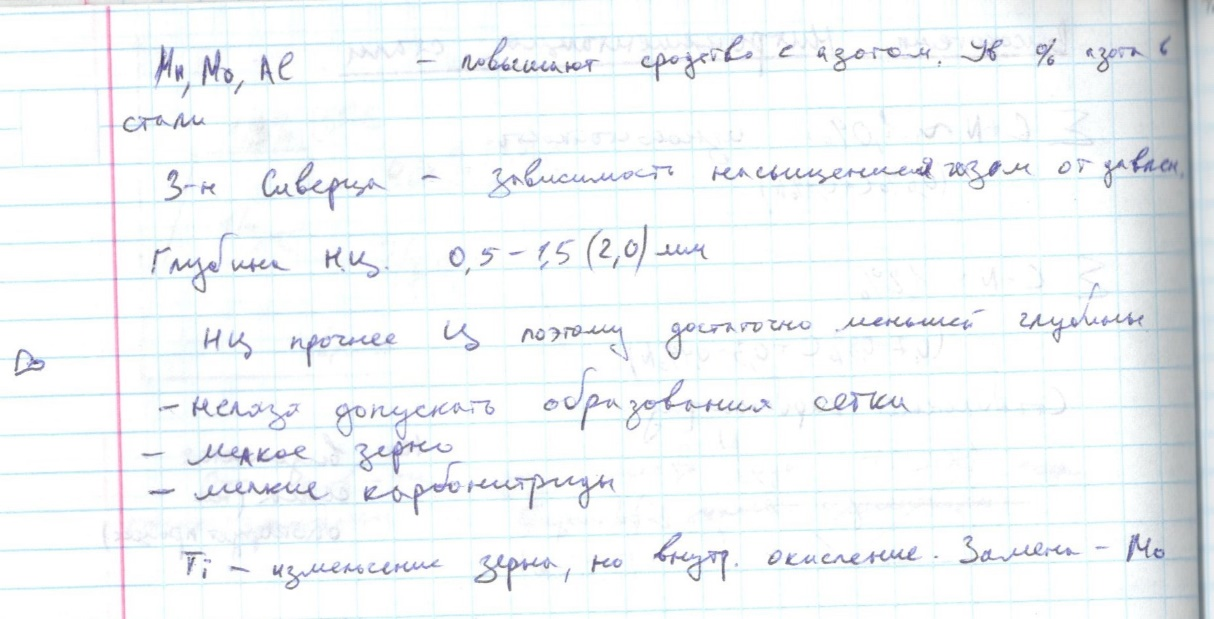 Mn, Mo, Al — повышают сродство с азотом. Ув % азота в
стали
З-н Сиверца – зависимость насыщения газом от давлен.
Глубина НЦ. 0,5 – 1,5 (2,0) мм
НЦ прочнее Ц поэтому достаточно меньшей глубины
– нельзя допускать образования сетки
– мелкое зерно
– мелкие карбонитриды
Ti – измельчение зерна, но внутр. окисление. Замена – Mo